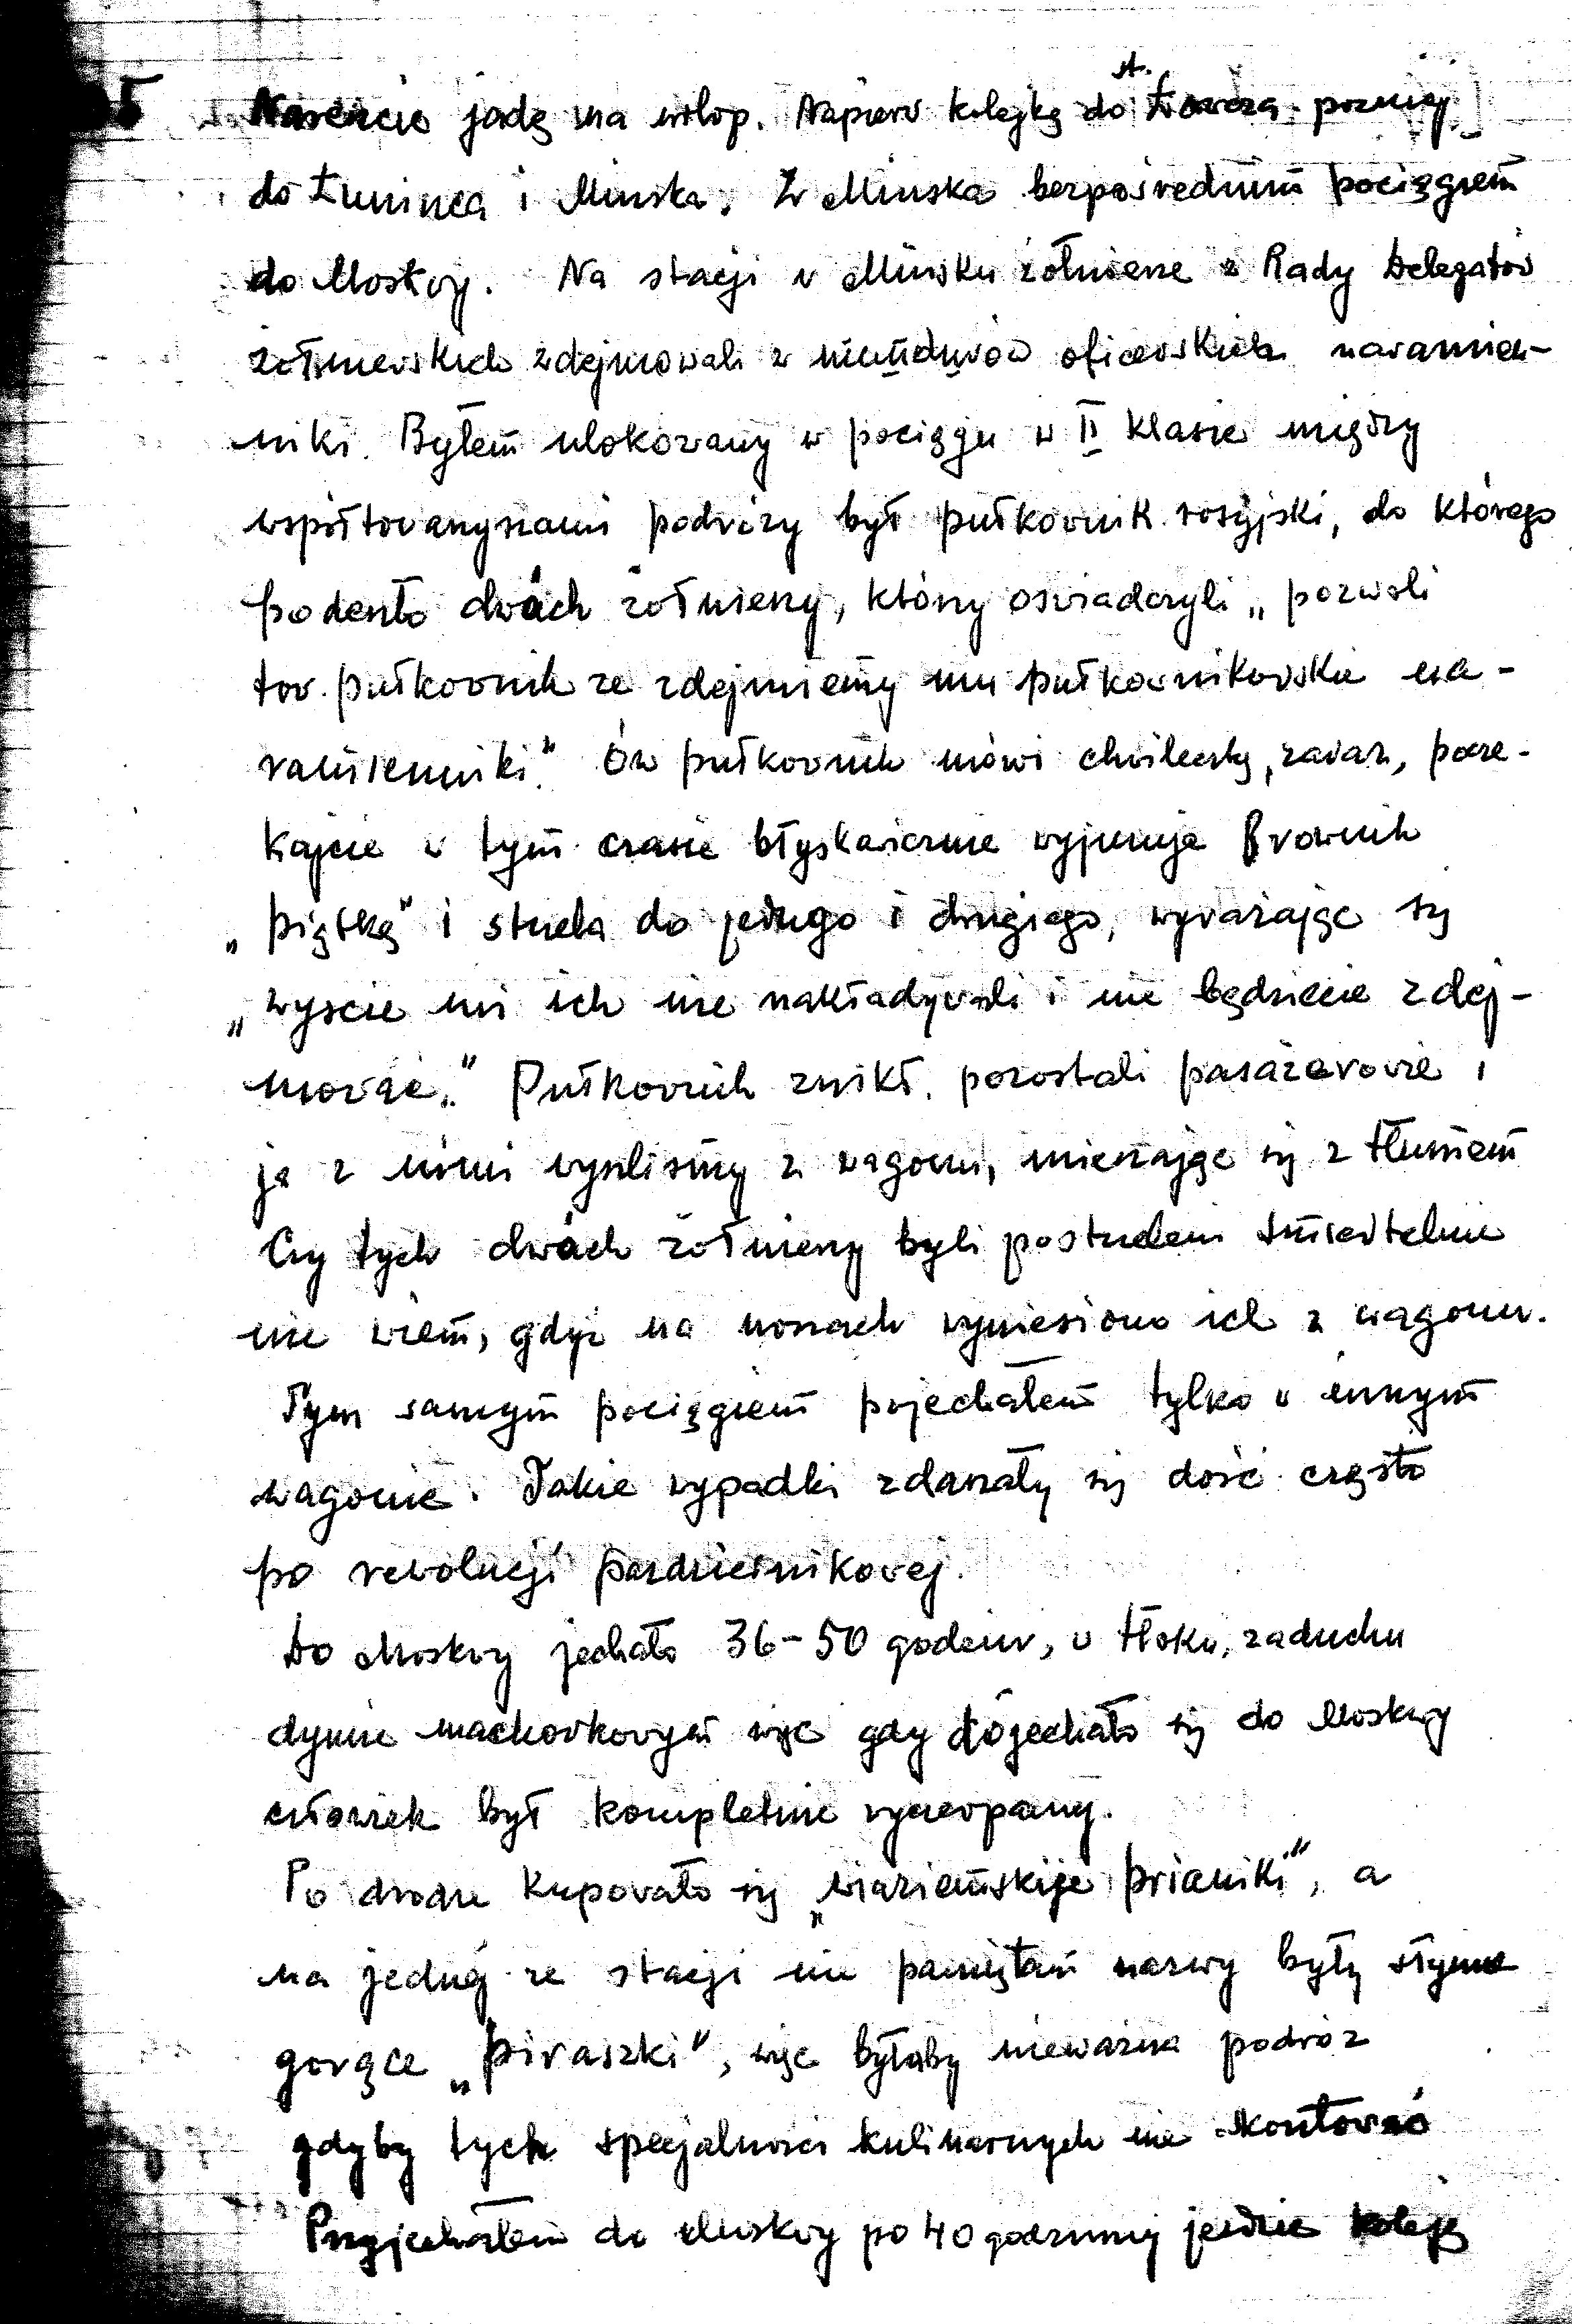 Nareszcie jadę na urlop. Najpierw kolejką do st. Łowcza, pozniej
do Łuninca i Minska. Z Minska bezpośrednim pociągiem
do Moskwy. Na stacji w Mińsku żołnierze z Rady Delegatów
żołnierskich zdejmowali z mundurów oficerskich naramien-
niki. Byłem ulokowany w pociągu w II klasie między
współtowarzyszami podróży był pułkownik rosyjski, do którego
podeszło dwóch żołnierzy, którzy oświadczyli „pozwoli
tow. pułkownik że zdejmiemy mu pułkownikowskie na-
ramienniki." Ów pułkownik mówi chwileczkę, zaraz, pocze-
kajcie w tym czasie błyskawicznie wyjmuje Brownik
„piątkę" i strzela do jednego i drugiego, wyrażając się
„wyscie mi ich nie nakładywali i nie będziecie zdej-
mować." Pułkownik znikł. pozostali pasażerowie i
ja z nimi wyszlismy z wagonu, mieszając się z tłumem
Czy tych dwóch żołnierzy byli postrzeleni śmiertelnie
nie wiem, gdyż na noszach wyniesiono ich z wagonu.
Tym samym pociągiem pojechałem tylko w innym
wagonie. Takie wypadki zdarzały się dość często
po rewolucji pazdziernikowej.
Do Moskwy jechało 36-50 godzin, w tłoku, zaduchu
dymie machorkowym więc gdy dojechało się do Moskwy
człowiek był kompletnie wyczerpany.
Po drodze kupowało się „wiaziemskije prianiki", a
na jednej ze stacji nie pamiętam nazwy były słynne
gorące „piraszki", więc byłaby nieważna podróż
gdyby tych specjalności kulinarnych nie skosztować
Przyjechałem do Moskwy po 40 godzinnej jeździe koleją